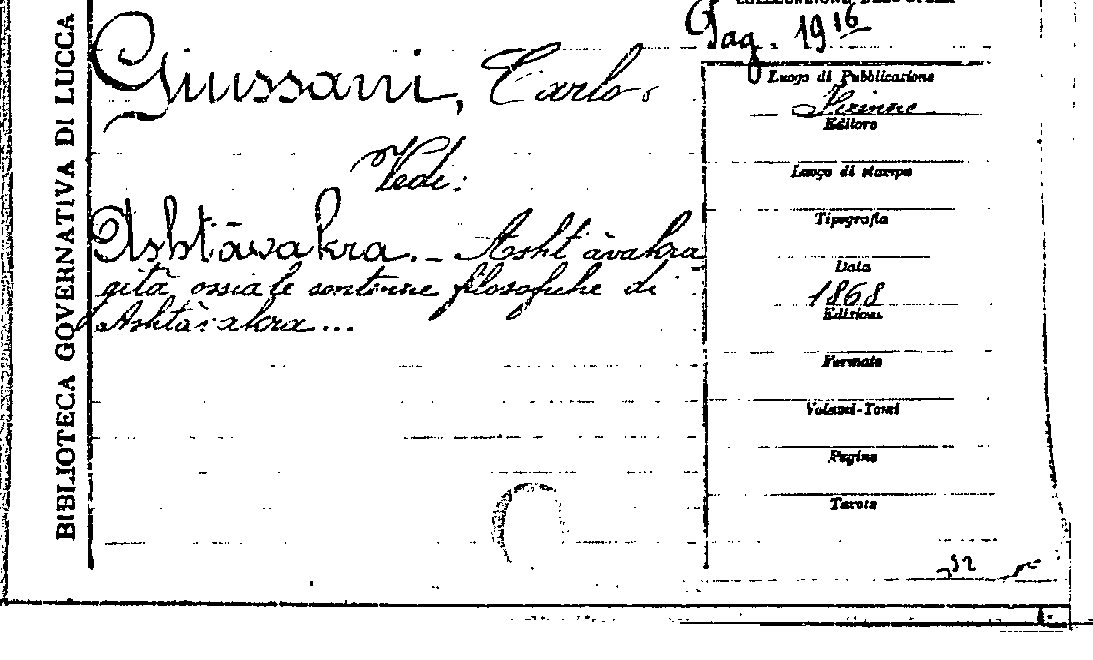 BIBLIOTECA GOVERNATIVA DI LUCCA
Pag. 1916
Giussani, Carlo.
Vedi:
Ashtāvakra. - Ashtàvakra
gità ossia le sentenze filosofiche di
Ashtàvakra...
Luogo di Pubblicazione
Firenze
Editore
Luogo di stampa
Tipografia
Data
1868
Edizione
Formato
Volumi-Tomi
Pagine
Tavole